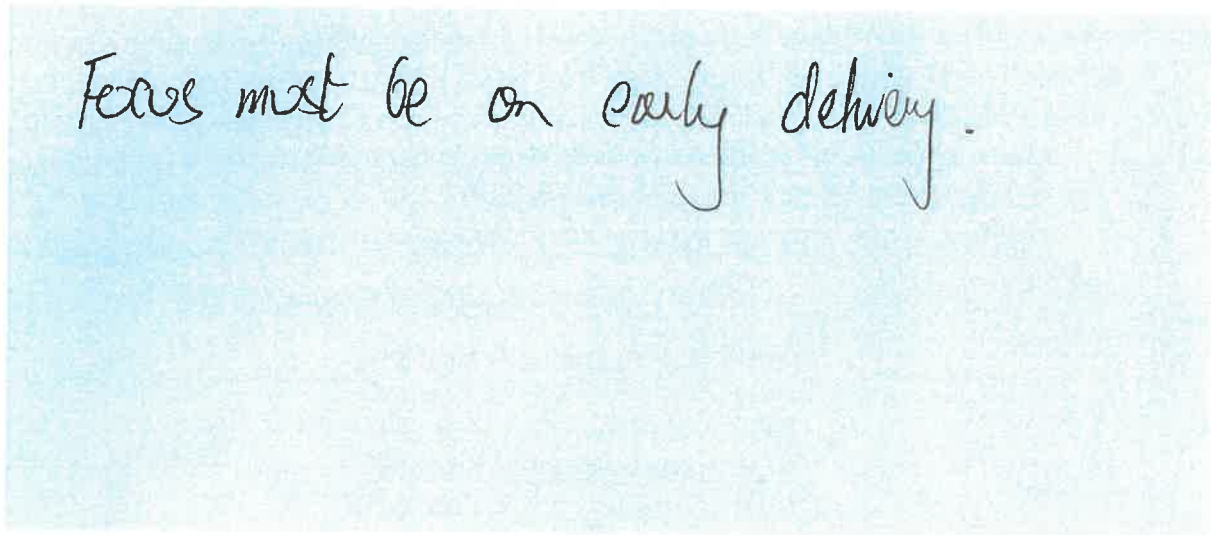 Focus must be on early delivery.